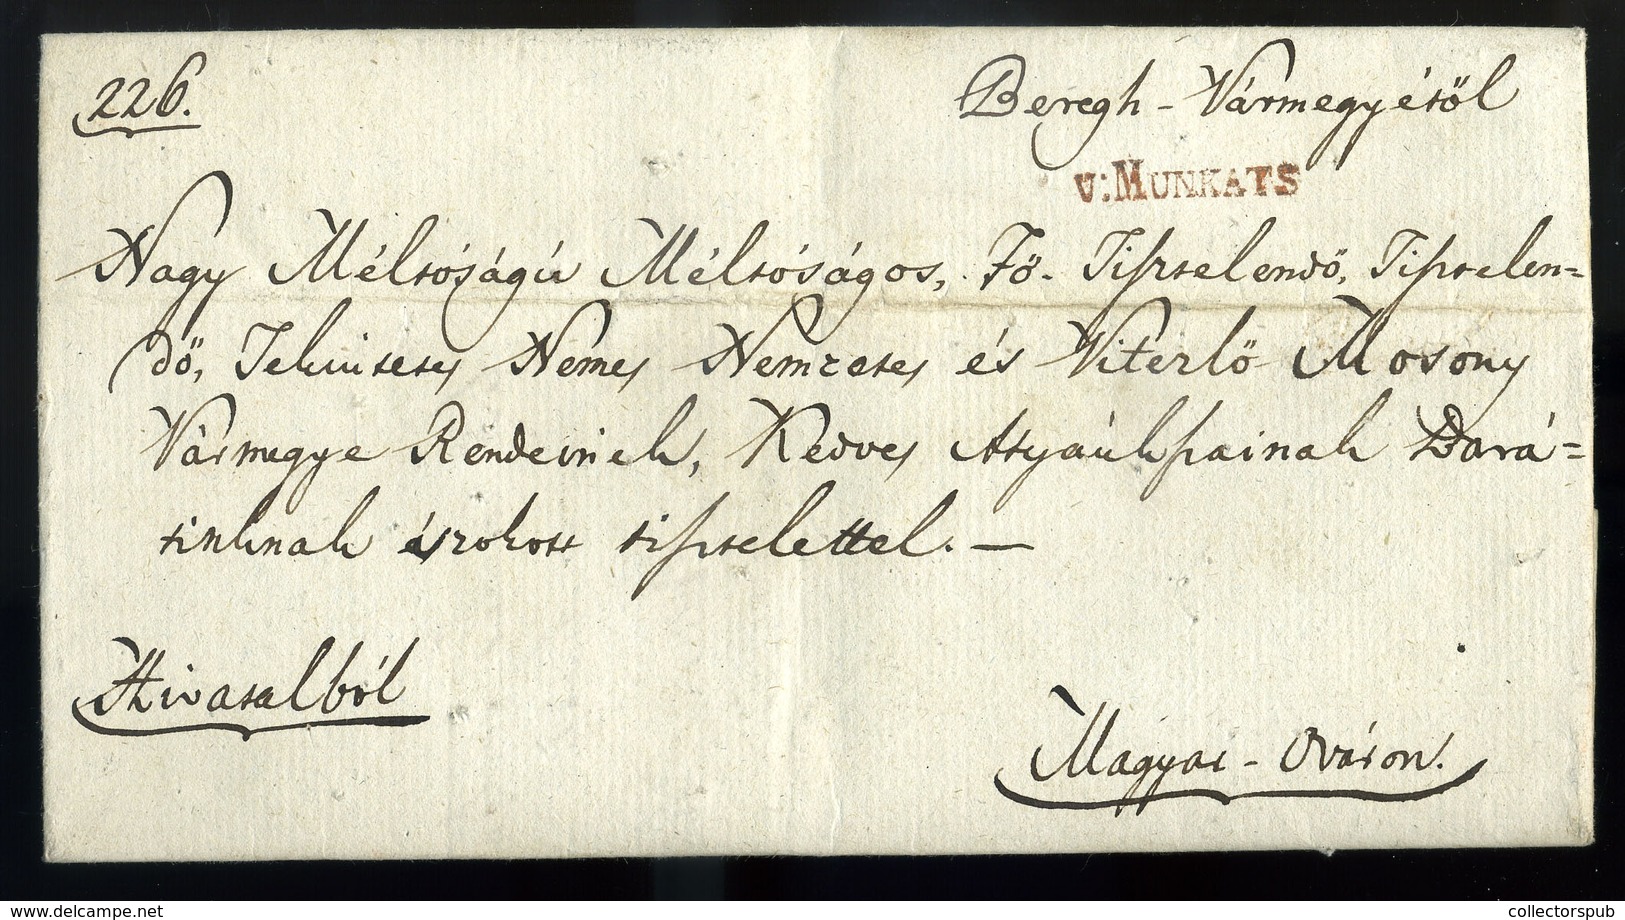 226.
Beregh - Vármegyétől
v: MUNKATS
Nagy Méltóságú Méltóságos, Fő- Tisztelendő, Tisztelen=
dő, Tekintetes Nemes Nemzetes és Vitézlő Mosony
Vármegye Rendeinek, Kedves Attyánkfiainak Bará=
tinknak szokott tisztelettel. —
Hivatalból
Magyar - Ováron.
collectorspub.com